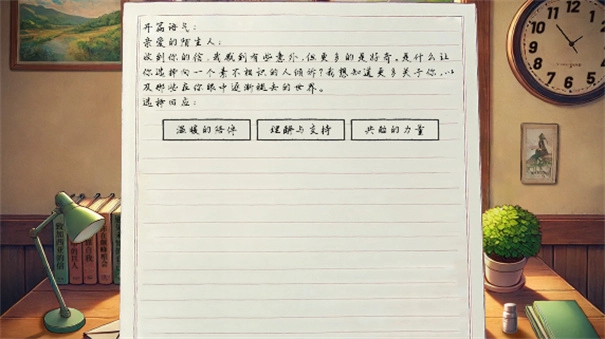 开篇语气：
亲爱的陌生人：
收到你的信，我感到有些意外，但更多的是好奇。是什么让
你选择向一个素不相识的人倾诉？我想知道更多关于你，以
及那些在你眼中逐渐褪去的世界。
选择回应：
温暖的陪伴
理解与支持
共鸣的力量
致加西亚的信